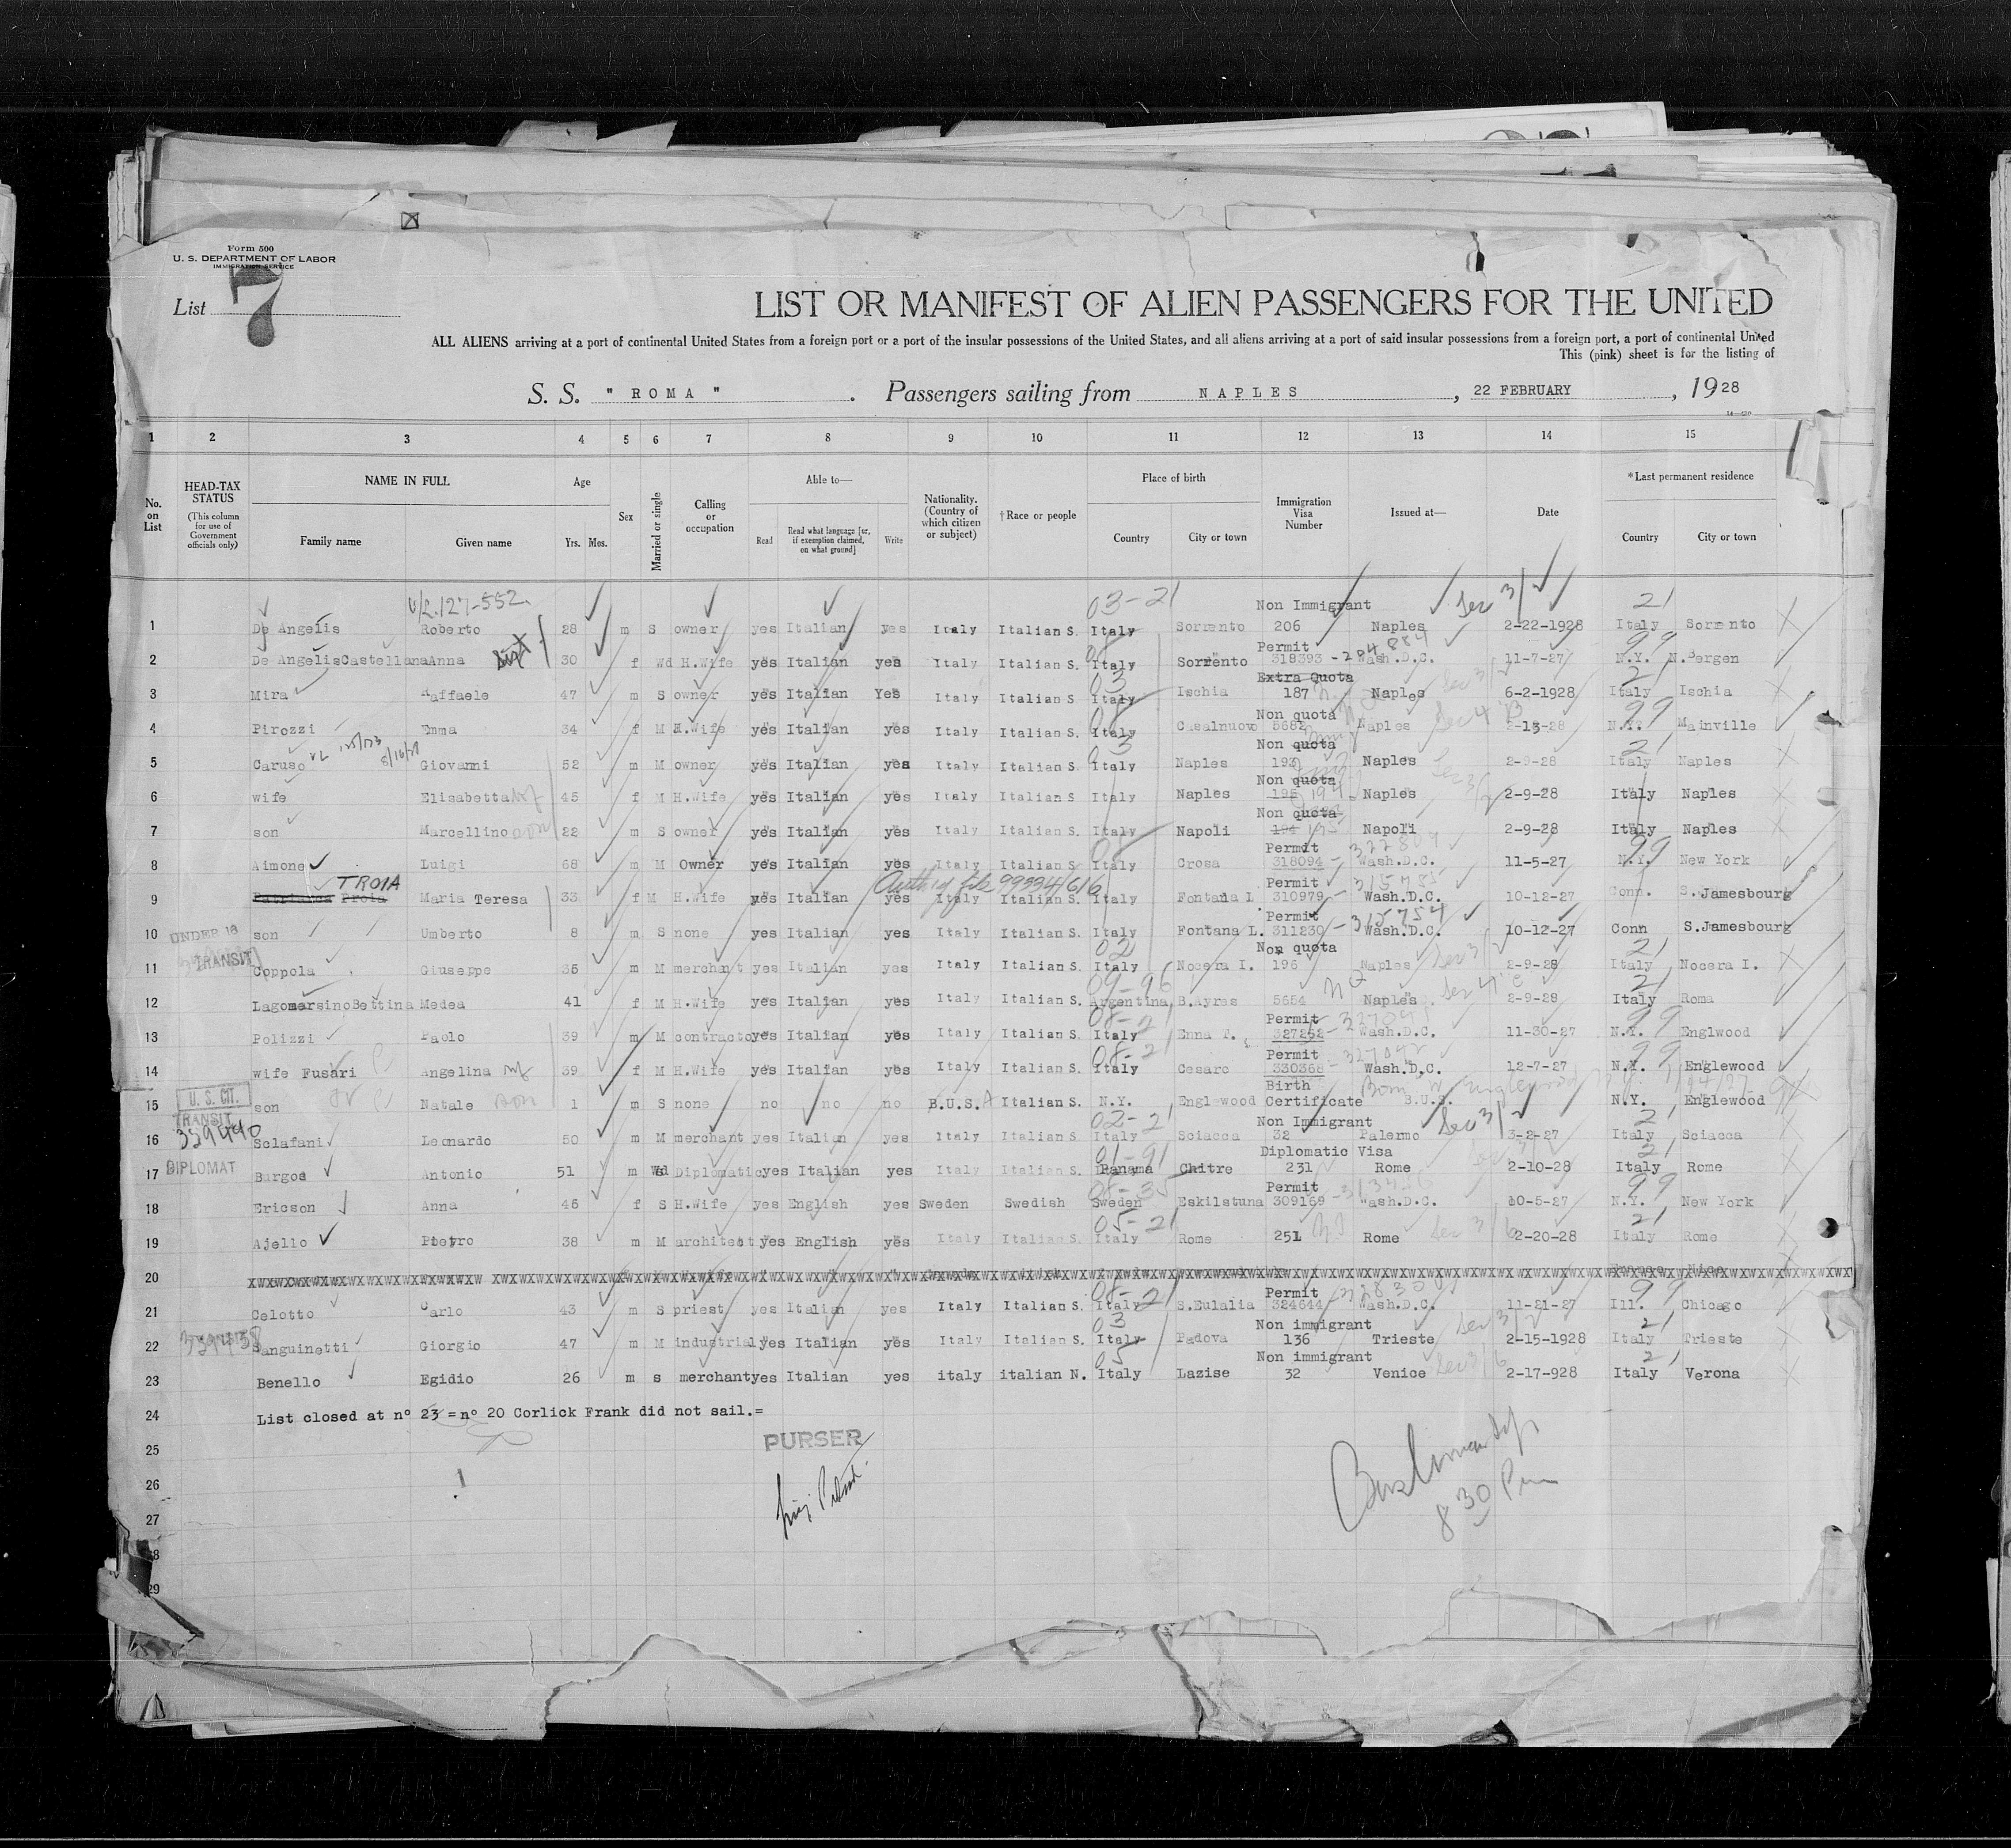 Form 500
U. S. DEPARTMENT OF LABOR
IMMIGRATION SERVICE
List 7
LIST OR MANIFEST OF ALIEN PASSENGERS FOR THE UNITED
ALL ALIENS arriving at a port of continental United States from a foreign port or a port of the insular possessions of the United States, and all aliens arriving at a port of said insular possessions from a foreign port, a port of continental United
This (pink) sheet is for the listing of
S. S. " ROMA " . Passengers sailing from NAPLES , 22 FEBRUARY , 1928
1 2 3 4 5 6 7 8 9 10 11 12 13 14 15
No. on List HEAD-TAX STATUS (This column for use of Government officials only) NAME IN FULL Family name Given name Age Yrs. Mos. Sex Married or single Calling or occupation Able to— Read Read what language [or, if exemption claimed, on what ground] Write Nationality. (Country of which citizen or subject) †Race or people Place of birth Country City or town Immigration Visa Number Issued at— Date *Last permanent residence Country City or town
V/L.127-552. 03-21 Non Immigrant Sec 3/2 21
1 De Angelis Roberto 28 m S owner yes Italian yes Italy Italian S. Italy Sorrento 206 Naples 2-22-1928 Italy Sorrento
Permit 284884 99
2 De Angelis Castellana Anna 30 f Wd H.Wife yes Italian yes Italy Italian S. Italy Sorrento 318393 Wash.D.C. 11-7-27 N.Y. N.Bergen
03 Extra Quota 21
3 Mira Raffaele 47 m S owner yes Italian Yes Italy Italian S Italy Ischia 187 Naples 6-2-1928 Italy Ischia
Non quota 99
4 Pirozzi Emma 34 f M H.Wife yes Italian yes Italy Italian S. Italy Casalnuovo 5682 Naples 2-13-28 N.Y. Mainville
03 Non quota 21
5 Caruso Giovanni 52 m M owner yes Italian yes Italy Italian S. Italy Naples 193 Naples 2-9-28 Italy Naples
Non quota
6 wife Elisabetta 45 f M H.Wife yes Italian yes Italy Italian S Italy Naples 194 Naples 2-9-28 Italy Naples
Non quota
7 son Marcellino son 22 m S owner yes Italian yes Italy Italian S. Italy Napoli 194 195 Napoli 2-9-28 Italy Naples
Permit 99
8 Aimone Luigi 68 m M Owner yes Italian yes Italy Italian S Italy Crosa 318094 Wash.D.C. 11-5-27 N.Y. New York
TROIA Auth by file 99334/616 Permit 315785
9 Patriarca Proia Maria Teresa 33 f M H.Wife yes Italian yes Italy Italian S. Italy Fontana L 310979 Wash.D.C. 10-12-27 Conn. S.Jamesbourg
UNDER 16 Permit 315754
10 son Umberto 8 m S none yes Italian yes Italy Italian S. Italy Fontana L. 311230 Wash.D.C. 10-12-27 Conn S.Jamesbourg
TRANSIT 02 Non quota 21
11 Coppola Giuseppe 35 m M merchant yes Italian yes Italy Italian S. Italy Nocera I. 196 Naples 2-9-28 Italy Nocera I.
09-96 21
12 Lagomarsino Bettina Medea 41 f M H.Wife yes Italian yes Italy Italian S. Argentina B.Ayres 5654 Naples 2-9-28 Italy Roma
08-21 Permit 99
13 Polizzi Paolo 39 m M contracto yes Italian yes Italy Italian S. Italy Enna T. 327252 Wash.D.C. 11-30-27 N.Y. Englwood
08-21 Permit 99
14 wife Fusari Angelina wf 39 f M H.Wife yes Italian yes Italy Italian S. Italy Cesaro 330368 Wash.D.C. 12-7-27 N.Y. Englewood
U. S. CIT. Birth
15 son Natale son 1 m S none no no no B.U.S.A Italian S. N.Y. Englewood Certificate B.U.S. N.Y. Englewood
TRANSIT 339440 02-21 Non Immigrant Sec 3/2 21
16 Sclafani Leonardo 50 m M merchant yes Italian yes Italy Italian S. Italy Sciacca 32 Palermo 3-2-27 Italy Sciacca
DIPLOMAT 01-91 Diplomatic Visa 21
17 Burgos Antonio 51 m Wd Diplomatic yes Italian yes Italy Italian S. Panama Chitre 231 Rome 2-10-28 Italy Rome
08-35 Permit 99
18 Ericson Anna 46 f S H.Wife yes English yes Sweden Swedish Sweden Eskilstuna 309169 Wash.D.C. 10-5-27 N.Y. New York
05-21 21
19 Ajello Pietro 38 m M architect yes English yes Italy Italian S. Italy Rome 251 Rome 2-20-28 Italy Rome
20
08-21 Permit 99
21 Celotto Carlo 43 m S priest yes Italian yes Italy Italian S. Italy S.Eulalia 324644 Wash.D.C. 11-21-27 Ill. Chicago
03 Non immigrant 21
22 Sanguinetti Giorgio 47 m M industrial yes Italian yes Italy Italian S. Italy Padova 136 Trieste 2-15-1928 Italy Trieste
05 Non immigrant 21
23 Benello Egidio 26 m s merchant yes Italian yes italy italian N. Italy Lazise 32 Venice 2-17-928 Italy Verona
24 List closed at nº 23 = nº 20 Corlick Frank did not sail.=
25 PURSER
26
27 8 30 Pm
28
29